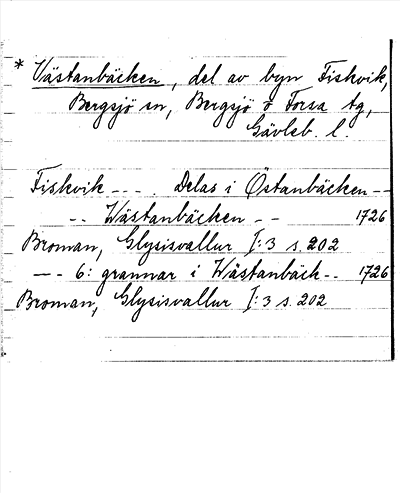 * Västanbäcken, del av byn Fiskvik,
Bergsjö sn, Bergsjö o Forsa tg,
Gävleb. l.
Fiskvik - - - . Delas i Östanbäcken - -
- - Wästanbäcken - - 1726
Broman, Glysisvallur I:3 s. 202
- - - 6: grannar i Wästanbäck - - 1726
Broman, Glysisvallur I:3 s. 202